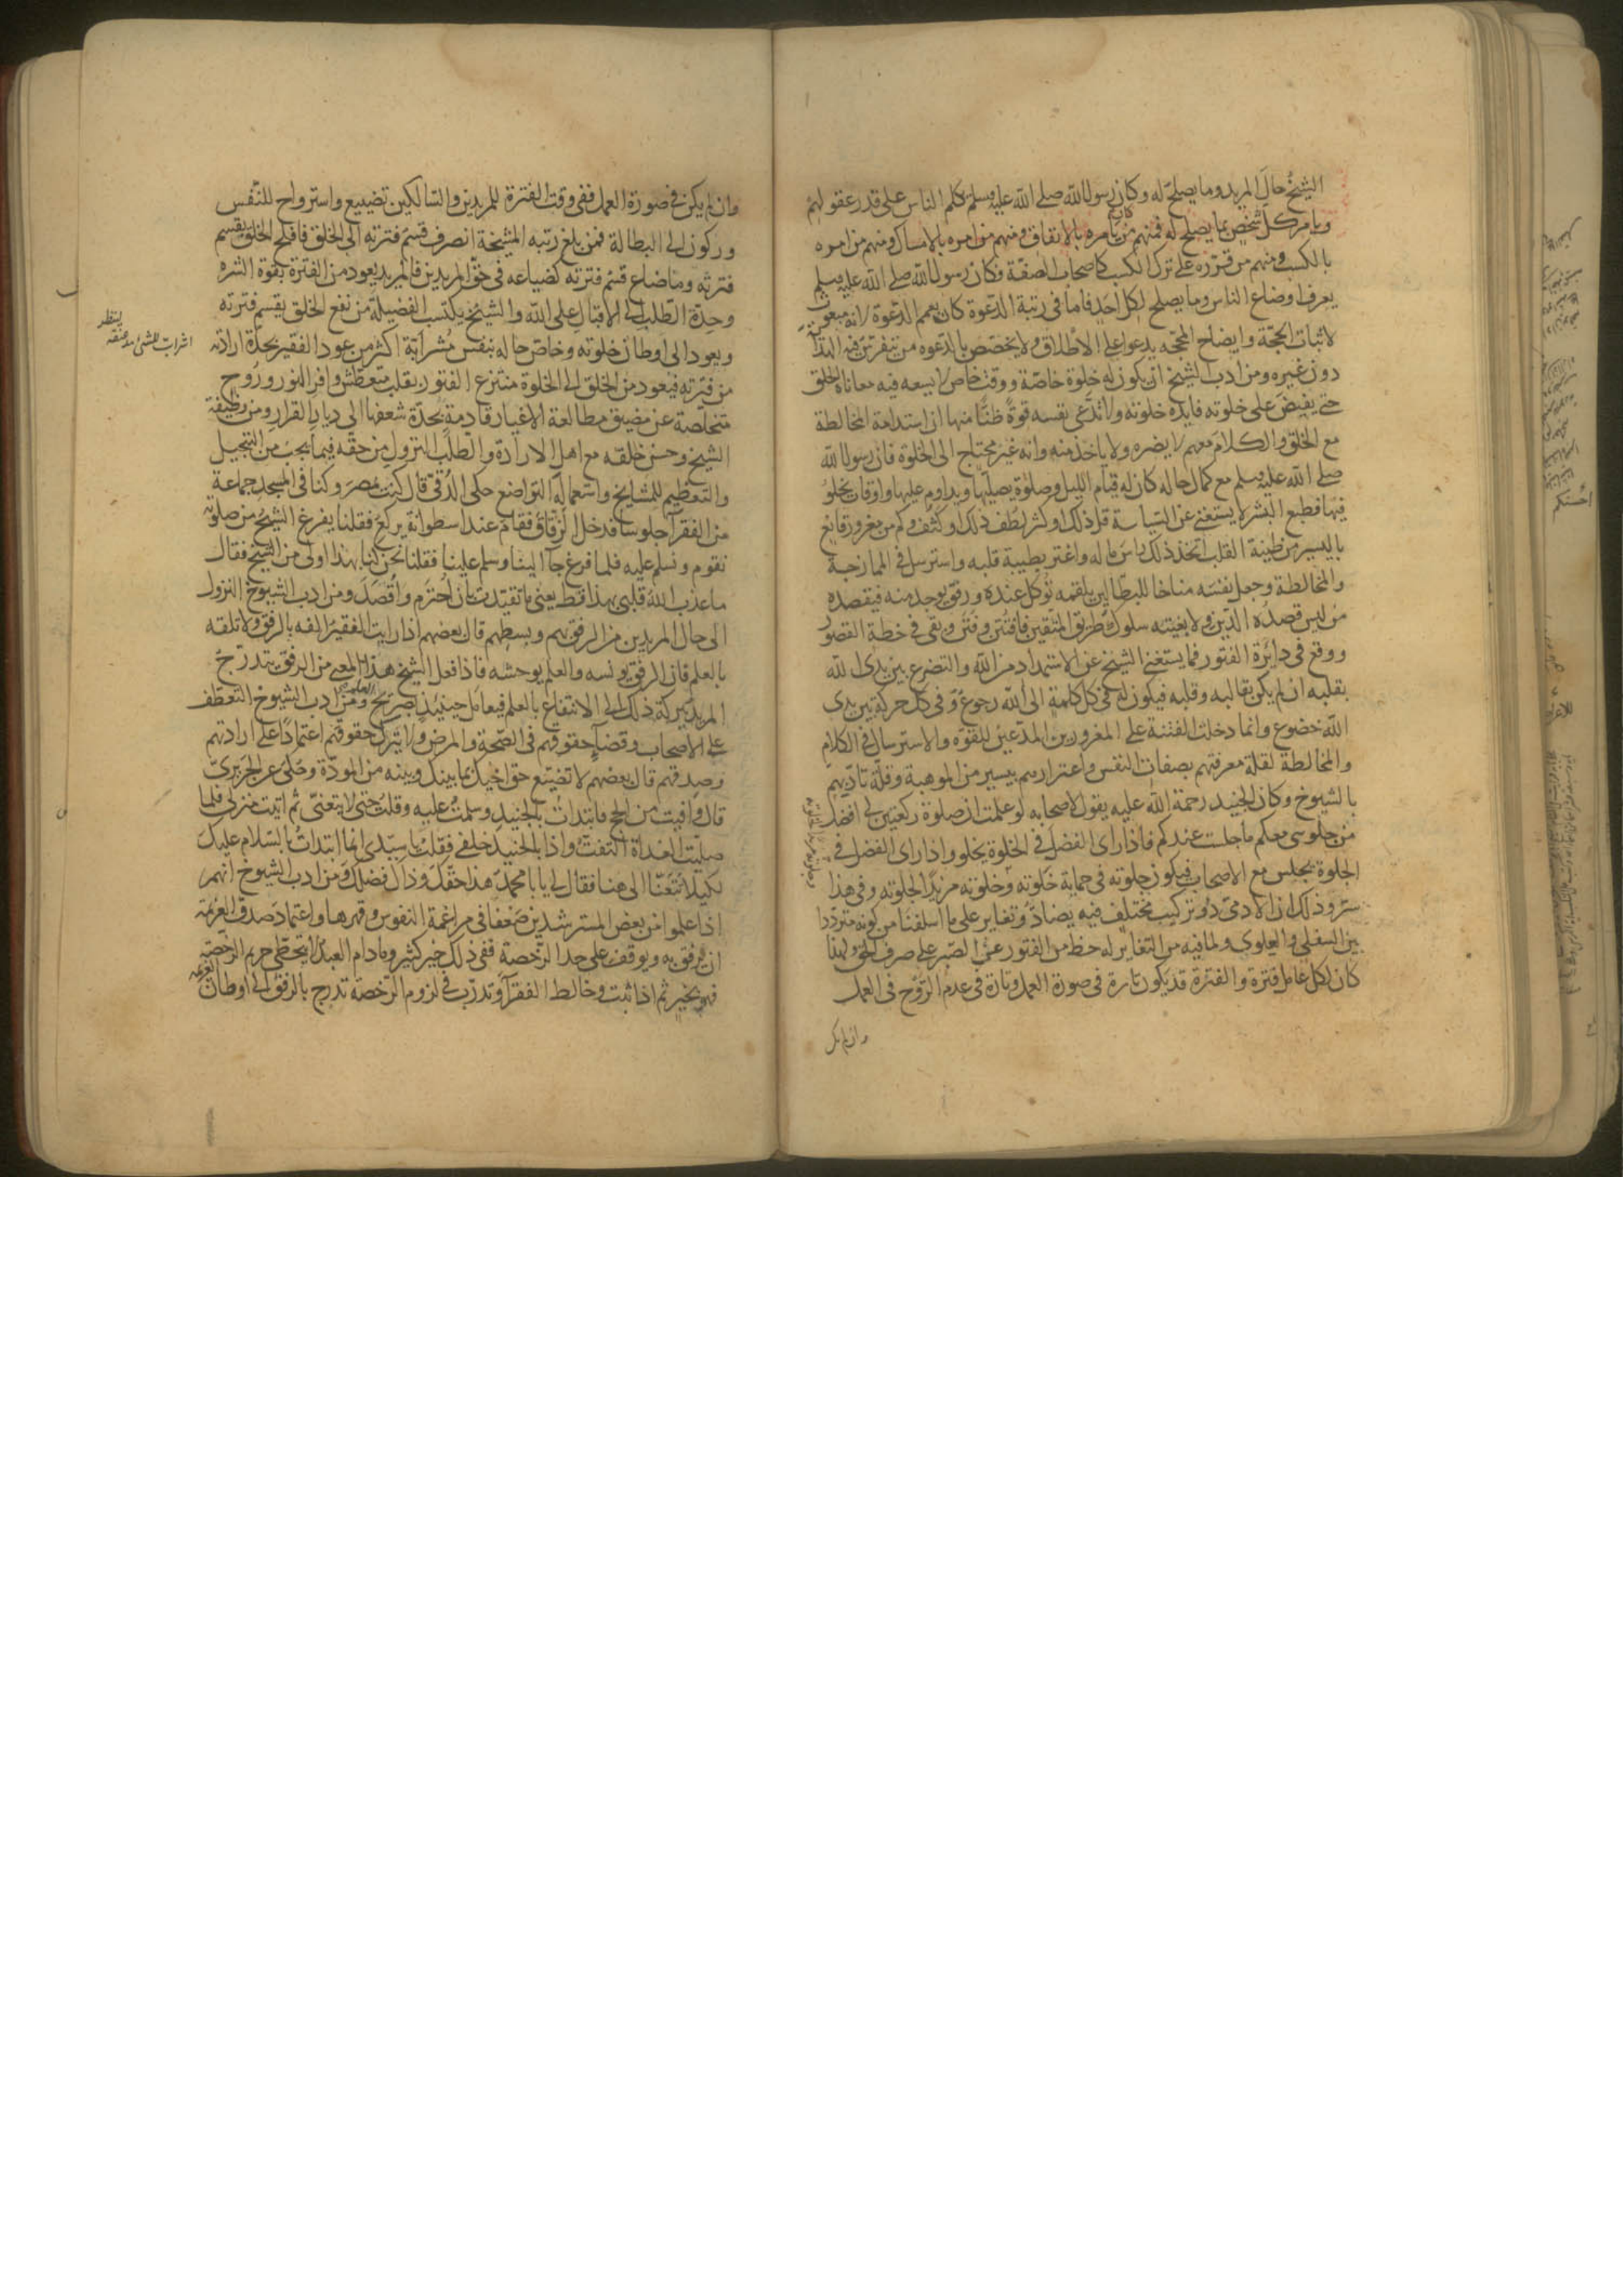 الشيخ حال المريد وما يصلح له وكان رسول الله صلى الله عليه وسلم يكلم الناس على قدر عقولهم
ويامر كل شخص بما يصلح له فمنهم من يامره بالانفاق ومنهم من امره بالامساك ومنهم من امره
بالكسب ومنهم من قرره على ترك الكسب كاصحاب الصفة فكان رسول الله صلى الله عليه وسلم
يعرف اوضاع الناس وما يصلح لكل احد فاما في رتبة الدعوة كان يعمم الدعوة لانه مبعوث
لاثبات الحجة وايضاح المحجة يدعو على الاطلاق ولا يخصص بالدعوه من يتفرس فيه الهداية
دون غيره ومن ادب الشيخ ان يكون له خلوة خاصة ووقت خاص لا يسعه فيه معاناة الخلق
حتى يفيض على خلوته فايدة خلوته ولا تدعى نفسه قوة ظنا منها ان استدامة المخالطة
مع الخلق والكلام معهم لا يضره ولا ياخذ منه وانه غير محتاج الى الخلوة فان رسول الله
صلى الله عليه وسلم مع كمال حاله كان له قيام الليل وصلوة يصليها ويداوم عليها واوقات يخلو
فيها فطبع البشر لا يستغنى عن السياسة قل ذلك او كثر لطف ذلك او كثف وكم من مغرور قانع
باليسير من طيبة القلب اتخذ ذلك راس ماله واغتر بطيبة قلبه واسترسل في الممازجة
والمخالطة وجعل نفسه مناخا للبطالين بلقمه تؤكل عنده ورفق يوجد منه فيقصده
من ليس قصده الدين ولا بغيته سلوك طريق المتقين فافتتن وفتن وبقى في خطة القصور
ووقع في دائرة الفتور فما يستغنى الشيخ عن الاستمداد من الله والتضرع بين يدى الله
بقلبه ان لم يكن بقالبه وقلبه فيكون له في كل كلمة الى الله رجوع وفي كل حركة بين يدى
الله خضوع وانما دخلت الفتنة على المغرورين المدعين للقوة والاسترسال في الكلام
والمخالطة لقلة معرفتهم بصفات النفس واغترارهم بيسير من الموهبة وقلة تادبهم
بالشيوخ وكان الجنيد رحمة الله عليه يقول لاصحابه لو علمت ان صلوة ركعتين لى افضل
من جلوسى معكم ما جلست عندكم فاذا راى الفضل في الخلوة يخلو واذا راى الفضل في
الجلوة يجلس مع الاصحاب فيكون جلوته في حماية خلوته وخلوته مزيدا لجلوته وفي هذا
سر وذلك ان الادمى ذو تركيب مختلف فيه يضاد وتغاير على ما اسلفنا من كونه مترددا
بين السفلى والعلوى ولما فيه من التغاير له حظ من الفتور عن الصبر على صرف الحق ولهذا
كان لكل عامل فترة والفترة قد يكون تارة في صورة العمل وتارة في عدم الروح في العمل
وان لم يكن
وان لم يكن في صورة العمل ففى وقت الفترة للمريدين والسالكين تضييع واسترواح للنفس
وركون الى البطالة فمن بلغ رتبه المشيخة انصرف قسم فترته الى الخلق فافلح الخلق بقسم
فترته وما ضاع قسم فترته كضياعه في حق المريدين فالمريد يعود من الفترة بقوة الشره
وحدة الطلب الى الاقبال على الله والشيخ يكتسب الفضيلة من نفع الخلق بقسم فترته
ويعود الى اوطان خلوته وخاص حاله بنفس مشرابة اكثر من عود الفقير بحدة ارادته
من فترته فيعود من الخلق الى الخلوة منتزع الفتور بقلب متعطش وافر النور وروح
متخلصة عن مضيق مطالعة الاغيار قادمة بحدة شغفها الى ديار القرار ومن وظيفة
الشيخ وحسن خلقه مع اهل الارادة والطلب النزول من حقه فيما يجب من التبجيل
والتعظيم للمشايخ واستعماله التواضع حكى الدقى قال كنت بمصر وكنا في المسجد جماعة
من الفقرا جلوسا فدخل الزقاق فقام عند اسطوانة يركع فقلنا يفرغ الشيخ من صلوته
نقوم ونسلم عليه فلما فرغ جآ الينا وسلم علينا فقلنا نحن كنا بهذا اولى من الشيخ فقال
ما عذب الله قلبى بهذا قط يعنى ما تقيدت بان احترم واقصد ومن ادب الشيوخ النزول
الى حال المريدين من الرفق بهم وبسطهم قال بعضهم اذا رايت الفقير القه بالرفق ولا تلقه
بالعلم فان الرفق يونسه والعلم يوحشه فاذا فعل الشيخ هذا المعنى من الرفق يتدرج
المريد ببركة ذلك الى الانتفاع بالعلم فيعامل حينئذ بصريح العلم ومن ادب الشيوخ التعطف
على الاصحاب وقضآ حقوقهم في الصحة والمرض ولا يترك حقوقهم اعتمادا على ارادتهم
وصدقهم قال بعضهم لا تضيع حق اخيك بما بينك وبينه من المودة وحكى عن الجريرى
قال وافيت من الحج فابتدات بالجنيد وسلمت عليه وقلت حتى لا يتعنى ثم اتيت منزلى فلما
صليت الغداة التفت واذا بالجنيد خلفى فقلت يا سيدى انما ابتدات بالسلام عليك
لكيلا تتعنا الى هنا فقال لى يا با محمد هذا حقك وذاك فضلك ومن ادب الشيوخ انهم
اذا علموا من بعض المسترشدين ضعفا في مراغمة النفوس وقهرها واعتماد صدق العزيمة
ان يرفق به ويوقف على حد الرخصة ففى ذلك خير كثير وما دام العبد لا يتخطى حريم الرخصة
فهو بخير ثم اذا ثبت وخالط الفقرآ وتدرب في لزوم الرخصة تدرج بالرفق الى اوطان العزيمه